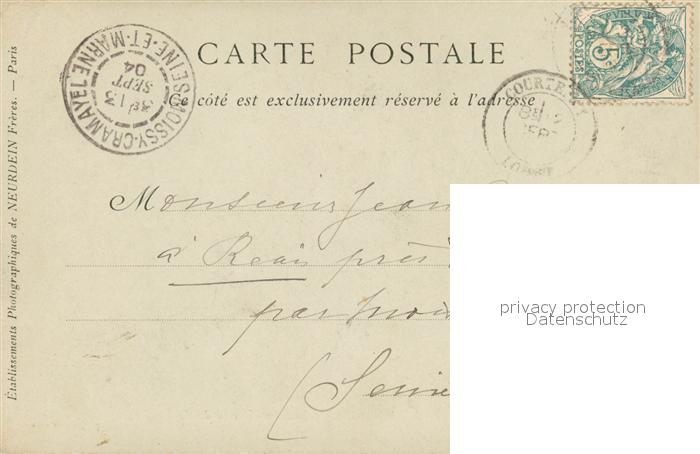 CARTE POSTALE
Ce côté est exclusivement réservé à l'adresse
MOISSY-CRAMAYEL SEINE-ET-MARNE
13
SEPT
04
COURTE
5
Établissements Photographiques de NEURDEIN Frères. — Paris
Monsieur Jean
à Reau près
par Moi
(Seine
privacy protection
Datenschutz